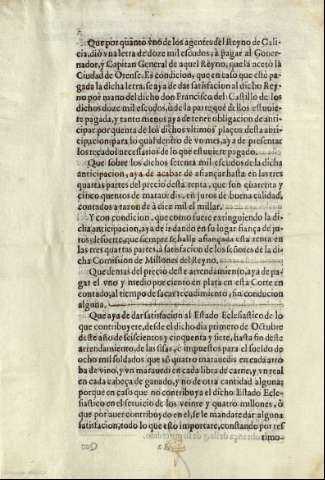 Que por quanto vno de los agentes del Reyno de Gali-
cia, dió vna letra de doze mil escudos, a pagar al Gouer-
nador, y Capitan General de aquel Reyno, que la acetó la
Ciudad de Orense. Es condicion, que en caso que estè pa-
gada la dicha letra, se aya de dar satisfacion al dicho Rey-
no por mano del dicho don Francisco del Castillo de los
dichos doze mil escudos, ò de la parte que dellos estuuie-
re pagada, y tanto menos aya de tener obligacion de anti-
cipar por quenta de los dichos vltimos plaços desta anti-
cipacion, para lo qual dentro de vn mes, aya de presentar
los recados necessarios de lo que estuuiere pagado.
Que sobre los dichos setenta mil escudos de la dicha
anticipacion, aya de acabar de afiançar hasta en las tres
quartas partes del precio desta renta, que son quarenta y
cinco quentos de marauedis, en juros de buena calidad,
contados a razon de à diez mil el millar.
Y con condicion, que como fuere extinguiendo la di-
cha anticipacion, aya de ir dando en su lugar fiança de ju-
ros, de suerte, que siempre se halle afiançada esta renta en
las tres quartas partes, à satisfacion de los señores de la di-
cha Comission de Millones del Reyno.
Que demas del precio deste arrendamiento, aya de pa-
gar el vno y medio por ciento en plata en esta Corte en
contado, al tiempo de sacar recudimiento, sin condicion
alguna.
Que aya de dar satisfacion al Estado Eclesiastico de lo
que contribuyere, desde el dicho dia primero de Octubre
deste año de seiscientos y cinquenta y siete, hasta fin deste
arrendamiento, de las sisas, è impuestos para el sueldo de
ocho mil soldados que es quatro marauedis en cada arro-
ba de vino, y vn marauedi en cada libra de carne, y vn real
en cada cabeça de ganado, y no de otra cantidad alguna;
porque en caso que no contribuya el dicho Estado Ecle-
siastico en el seruicio de los veinte y quatro millones, ò
que por auer contribuydo en el, se le mandare dar alguna
satisfacion, todo lo que esto importare, constando por tes
timo-